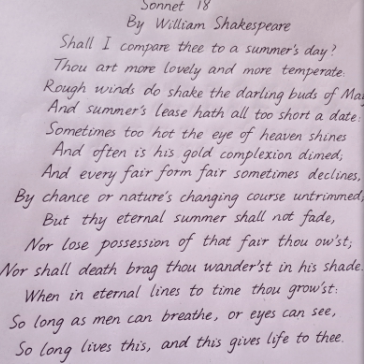 Sonnet 18
By William Shakespeare
Shall I compare thee to a summer's day?
Thou art more lovely and more temperate.
Rough winds do shake the darling buds of May
And summer's lease hath all too short a date:
Sometimes too hot the eye of heaven shines
And often is his gold complexion dimed,
And every fair form fair sometimes declines,
By chance or nature's changing course untrimmed,
But thy eternal summer shall not fade,
Nor lose possession of that fair thou ow'st;
Nor shall death brag thou wander'st in his shade.
When in eternal lines to time thou grow'st:
So long as men can breathe, or eyes can see,
So long lives this, and this gives life to thee.